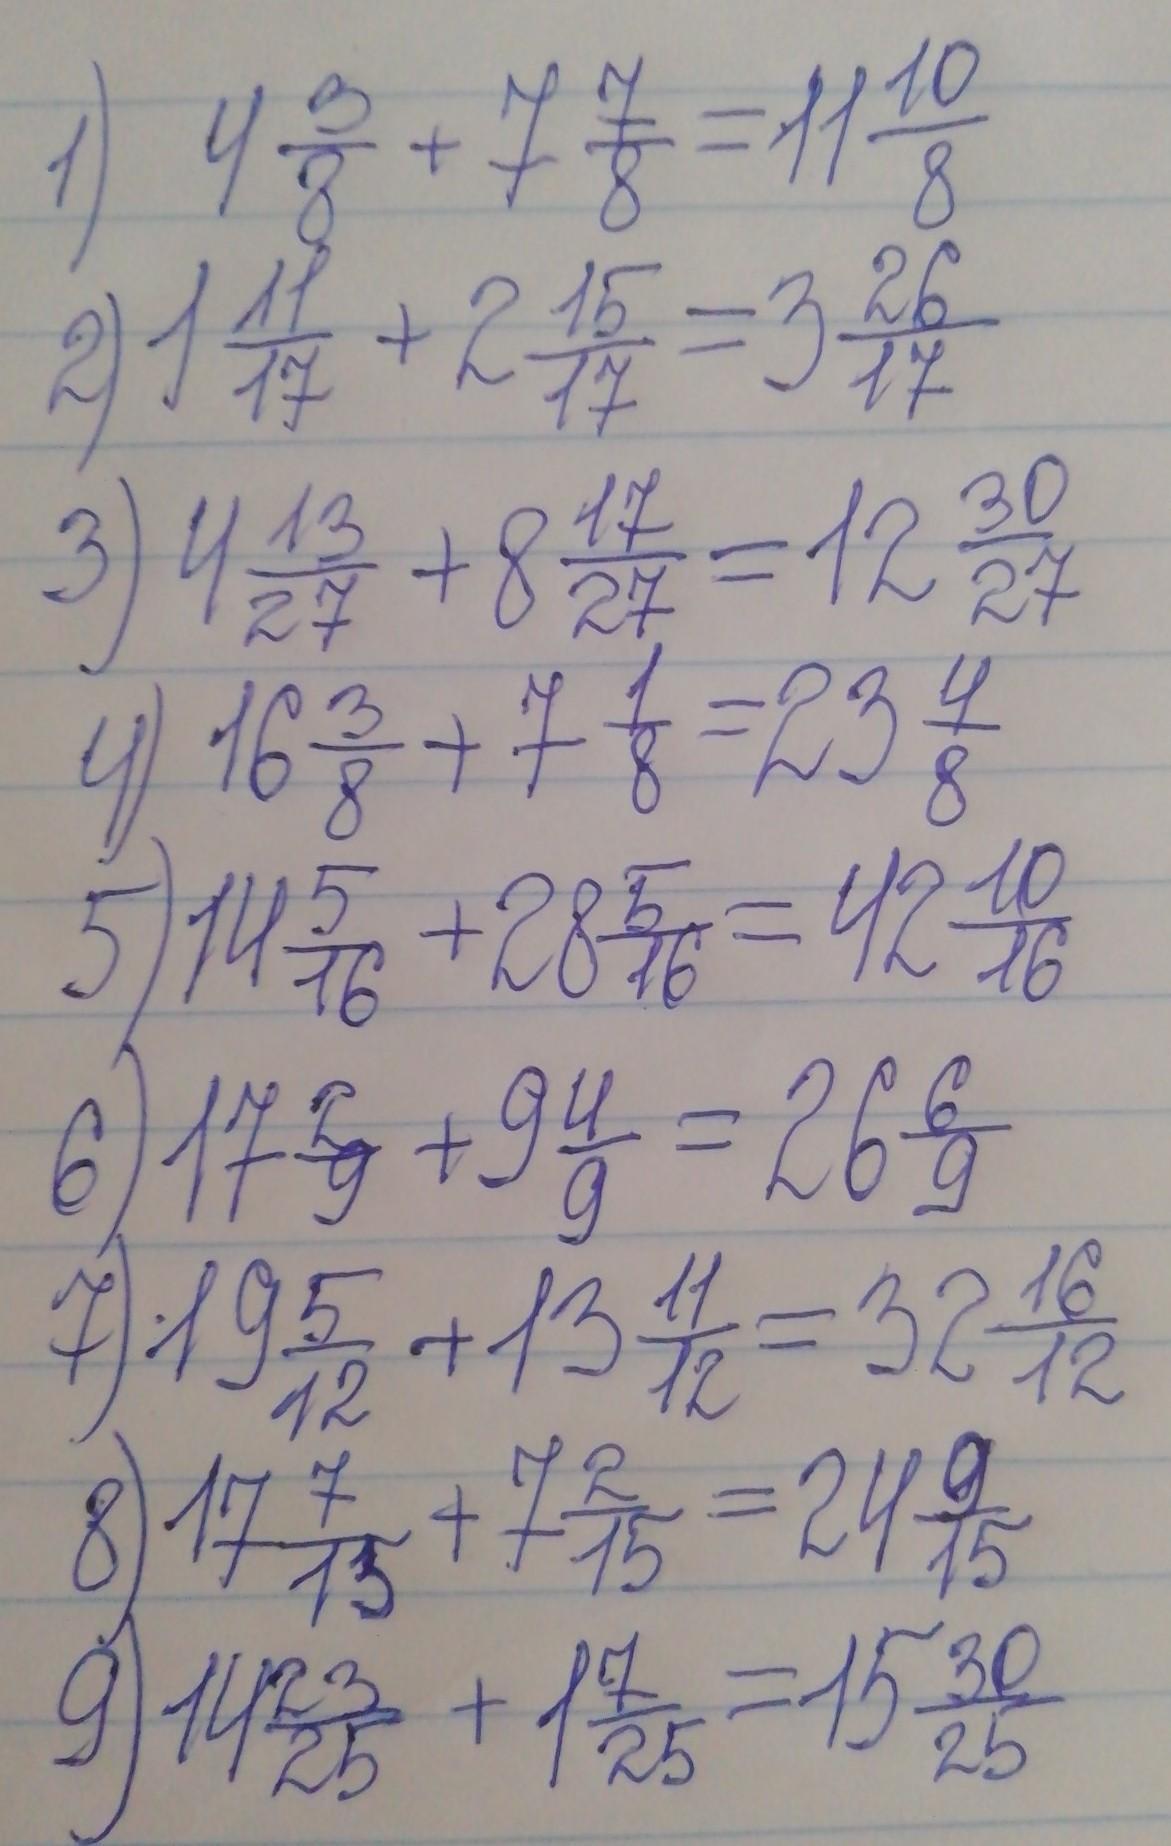 1) 4 3/8 + 7 7/8 = 11 10/8
2) 1 11/17 + 2 15/17 = 3 26/17
3) 4 13/27 + 8 17/27 = 12 30/27
4) 16 3/8 + 7 1/8 = 23 4/8
5) 14 5/16 + 28 5/16 = 42 10/16
6) 17 2/9 + 9 4/9 = 26 6/9
7) 19 5/12 + 13 11/12 = 32 16/12
8) 17 7/15 + 7 2/15 = 24 9/15
9) 14 23/25 + 1 7/25 = 15 30/25